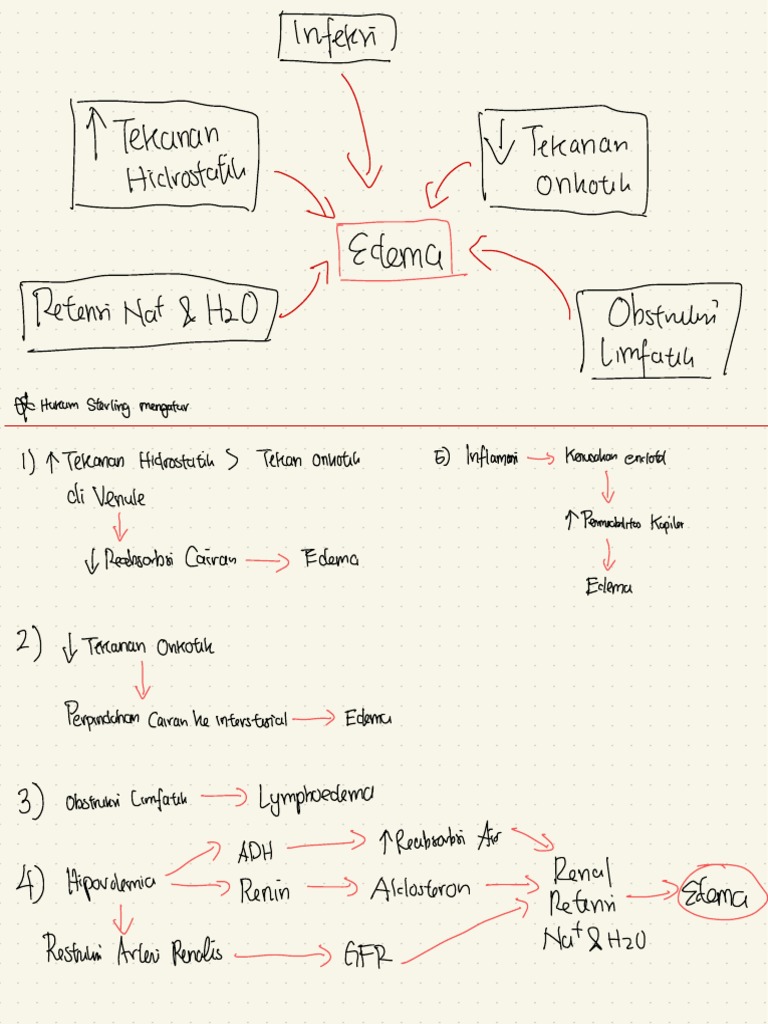 Infeksi
↑ Tekanan
Hidrostatik
↓ Tekanan
Onkotik
Edema
Retensi Na+ & H2O
Obstruksi
Limfatik
* Hukum Starling mengatur
1) ↑ Tekanan Hidrostatik > Tekan Onkotik
di Venule
↓ Reabsorbsi Cairan → Edema
5) Inflamasi → Kerusakan endotel
↑ Permeabilitas Kapiler
Edema
2) ↓ Tekanan Onkotik
Perpindahan Cairan ke interstasial → Edema
3) Obstruksi Limfatik → Lymphoedema
4) Hipovolemia
ADH → ↑ Reabsorbsi Air
Renin → Aldosteron
Restruksi Arteri Renalis → GFR
Renal
Retensi
Na+ & H2O
Edema